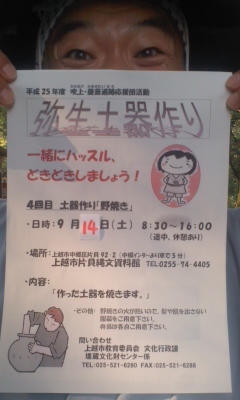 平成25年度 吹上・釜蓋遺跡応援団活動
弥生土器作り
一緒にハッスル、
どきどきしましょう！
4回目 土器作り「野焼き」
・日時：9月14日(土) 8:30～16:00
(途中、休憩あり)
・場所：「上越市中郷区片貝92-2(中郷インターより車で5分)
上越市片貝縄文資料館 TEL0255-74-4405
・内容：
「作った土器を焼きます。」
・その他：野焼きの火が熱いので、髪や肌を出さない
服装をご用意下さい。
弁当は各自ご用意下さい。
問い合わせ
上越市教育委員会 文化行政課
埋蔵文化財センター係
TEL:025-521-6280 FAX:025-521-6286